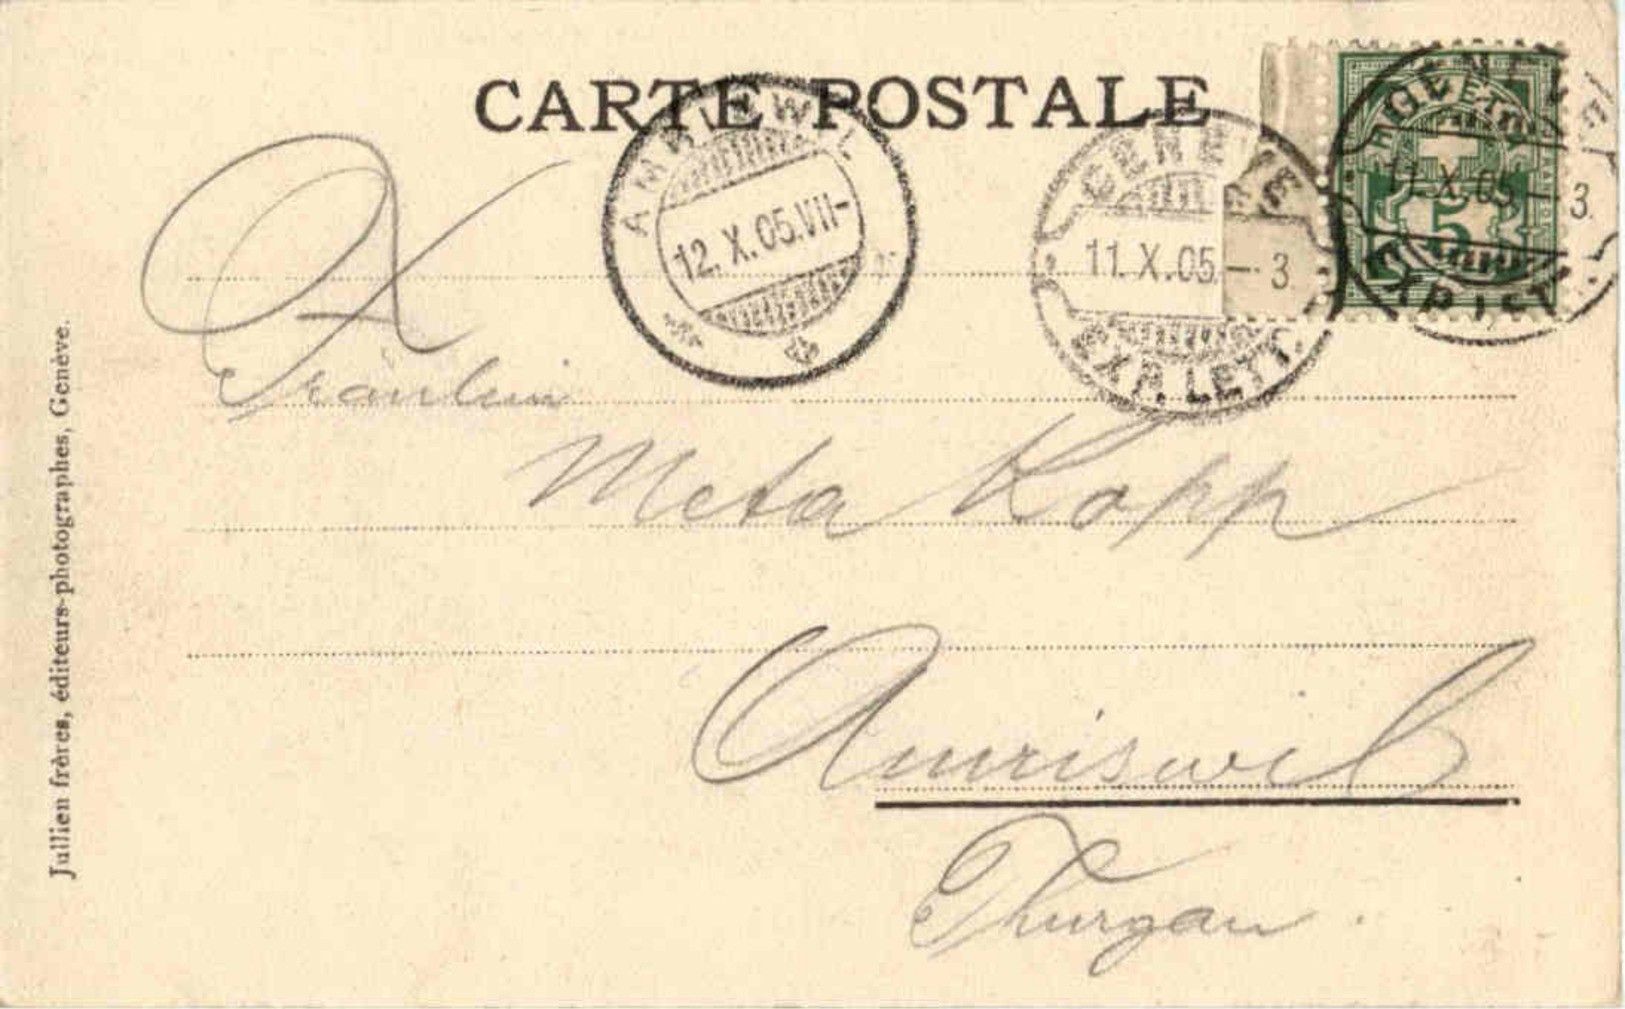 CARTE POSTALE
AMRISWIL
12. X. 05. VII-
GENÈVE
11. X. 05. - 3.
EXP. LETT.
GENÈVE
11. X. 05 - 3.
EXP. LETT.
5
Fräulein
Meta Kopp
Amriswil
Thurgau.
Jullien frères, éditeurs-photographes, Genève.